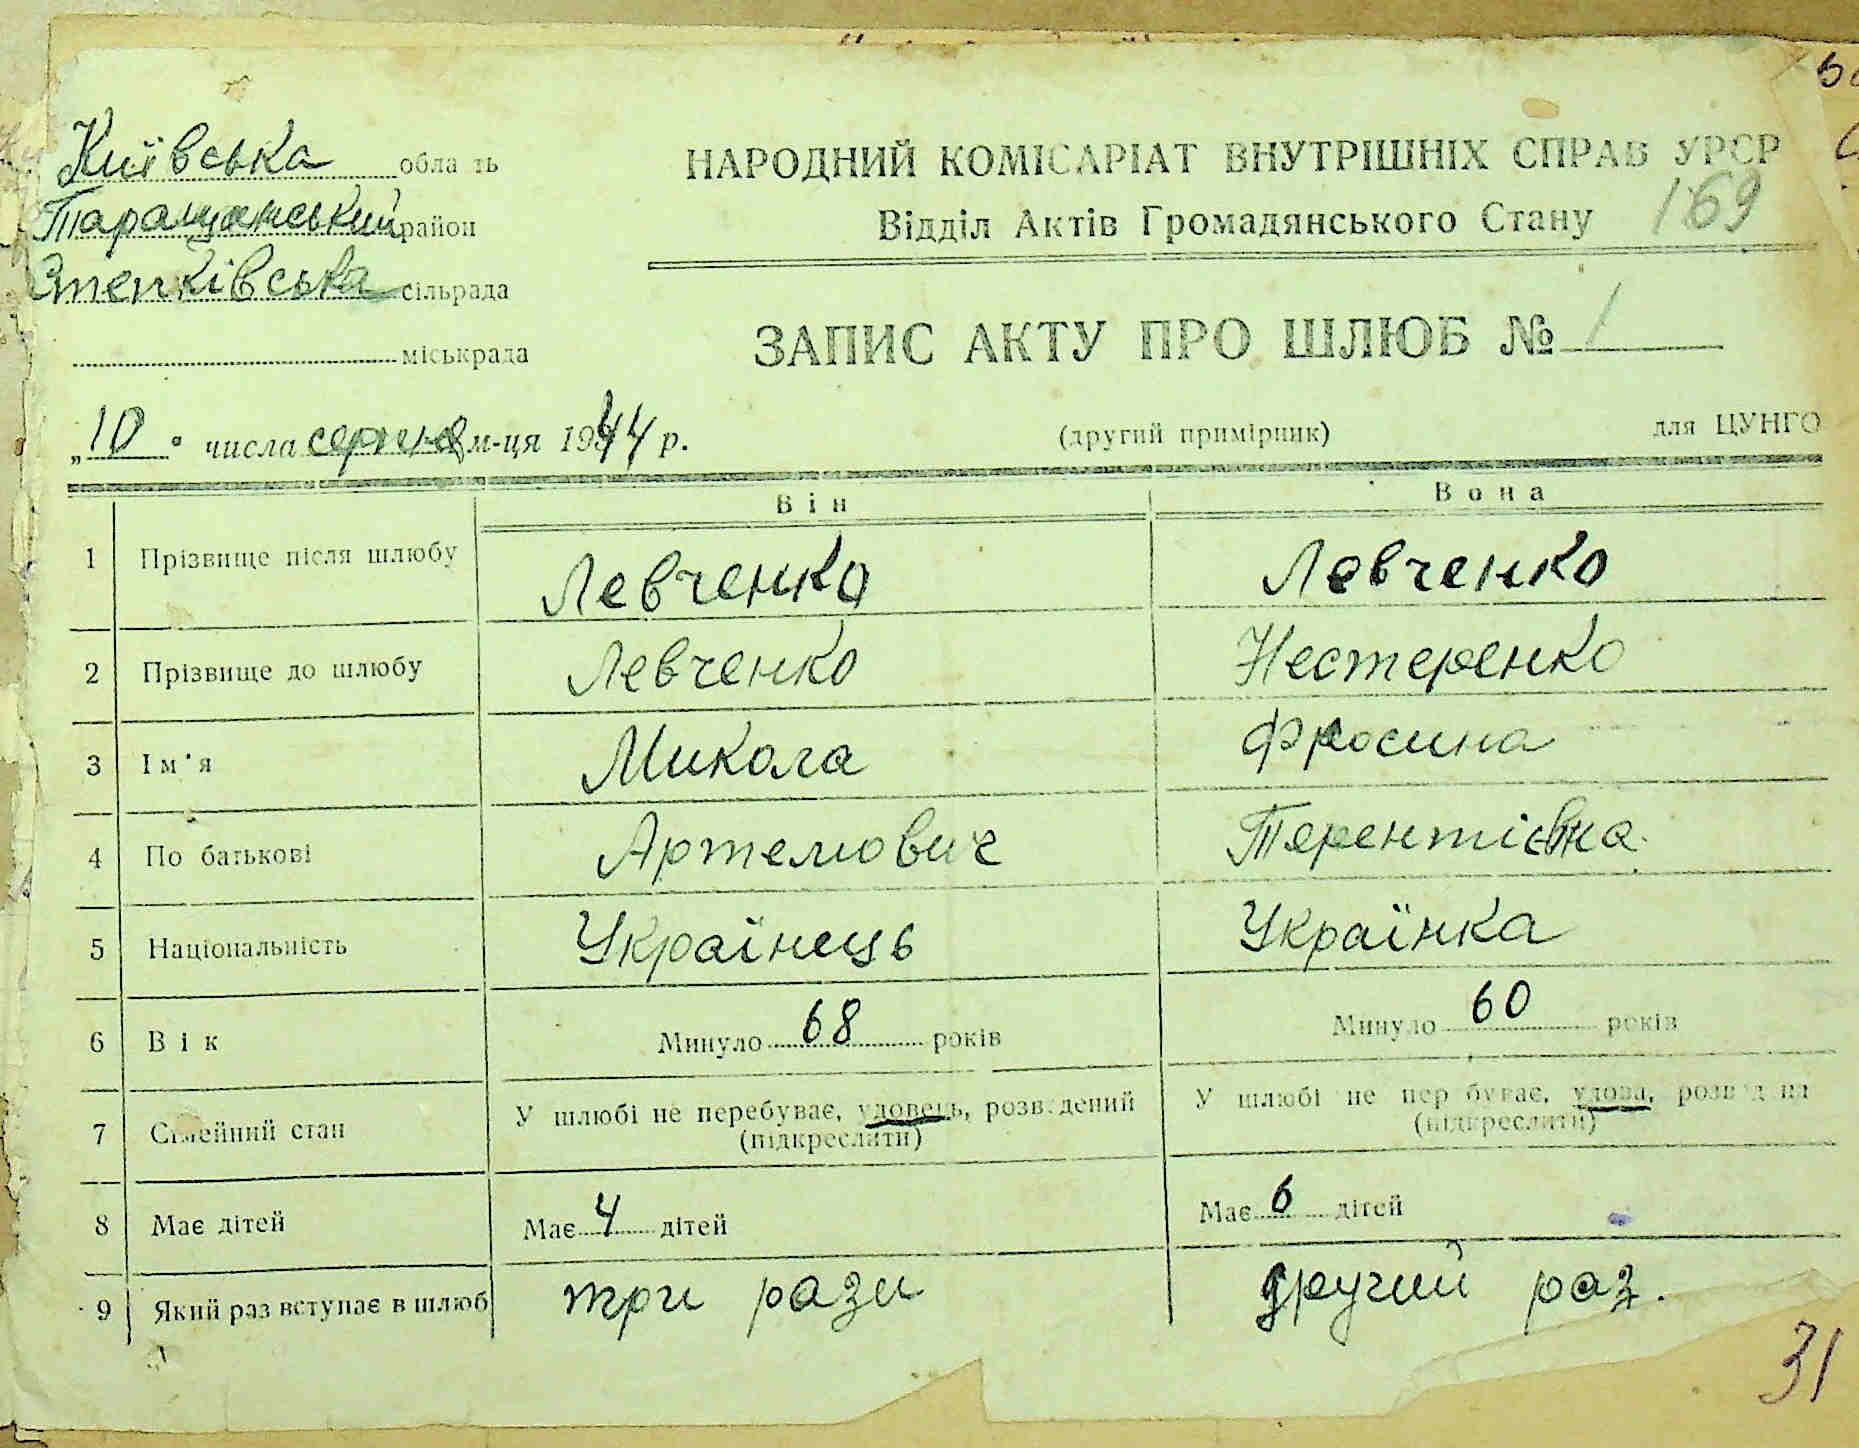 Київська область
Таращанський район
Степківська сільрада
міськрада
НАРОДНИЙ КОМІСАРІАТ ВНУТРІШНІХ СПРАВ УРСР
Відділ Актів Громадянського Стану 169
ЗАПИС АКТУ ПРО ШЛЮБ № 1
„10" числа серпня м-ця 1944 р. (другий примірник) для ЦУНГО
Він Вона
1 Прізвище після шлюбу Левченко Левченко
2 Прізвище до шлюбу Левченко Нестеренко
3 Ім'я Микола Фросина
4 По батькові Артемович Терентієвна
5 Національність Українець Українка
6 Вік Минуло 68 років Минуло 60 років
7 Сімейний стан У шлюбі не перебуває, удовець, розведений У шлюбі не перебуває, удова, розведена
(підкреслити) (підкреслити)
8 Має дітей Має 4 дітей Має 6 дітей
9 Який раз вступає в шлюб три рази другий раз.
31